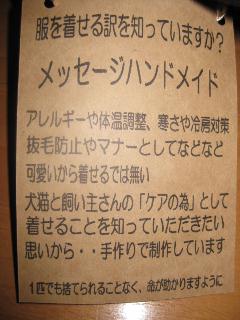 服を着せる訳を知っていますか？
メッセージハンドメイド
アレルギーや体温調整、寒さや冷房対策
抜毛防止やマナーとしてなどなど
可愛いから着せるでは無い
犬猫と飼い主さんの「ケアの為」として
着せることを知っていただきたい
思いから・・手作りで制作しています
１匹でも捨てられることなく、命が助かりますように